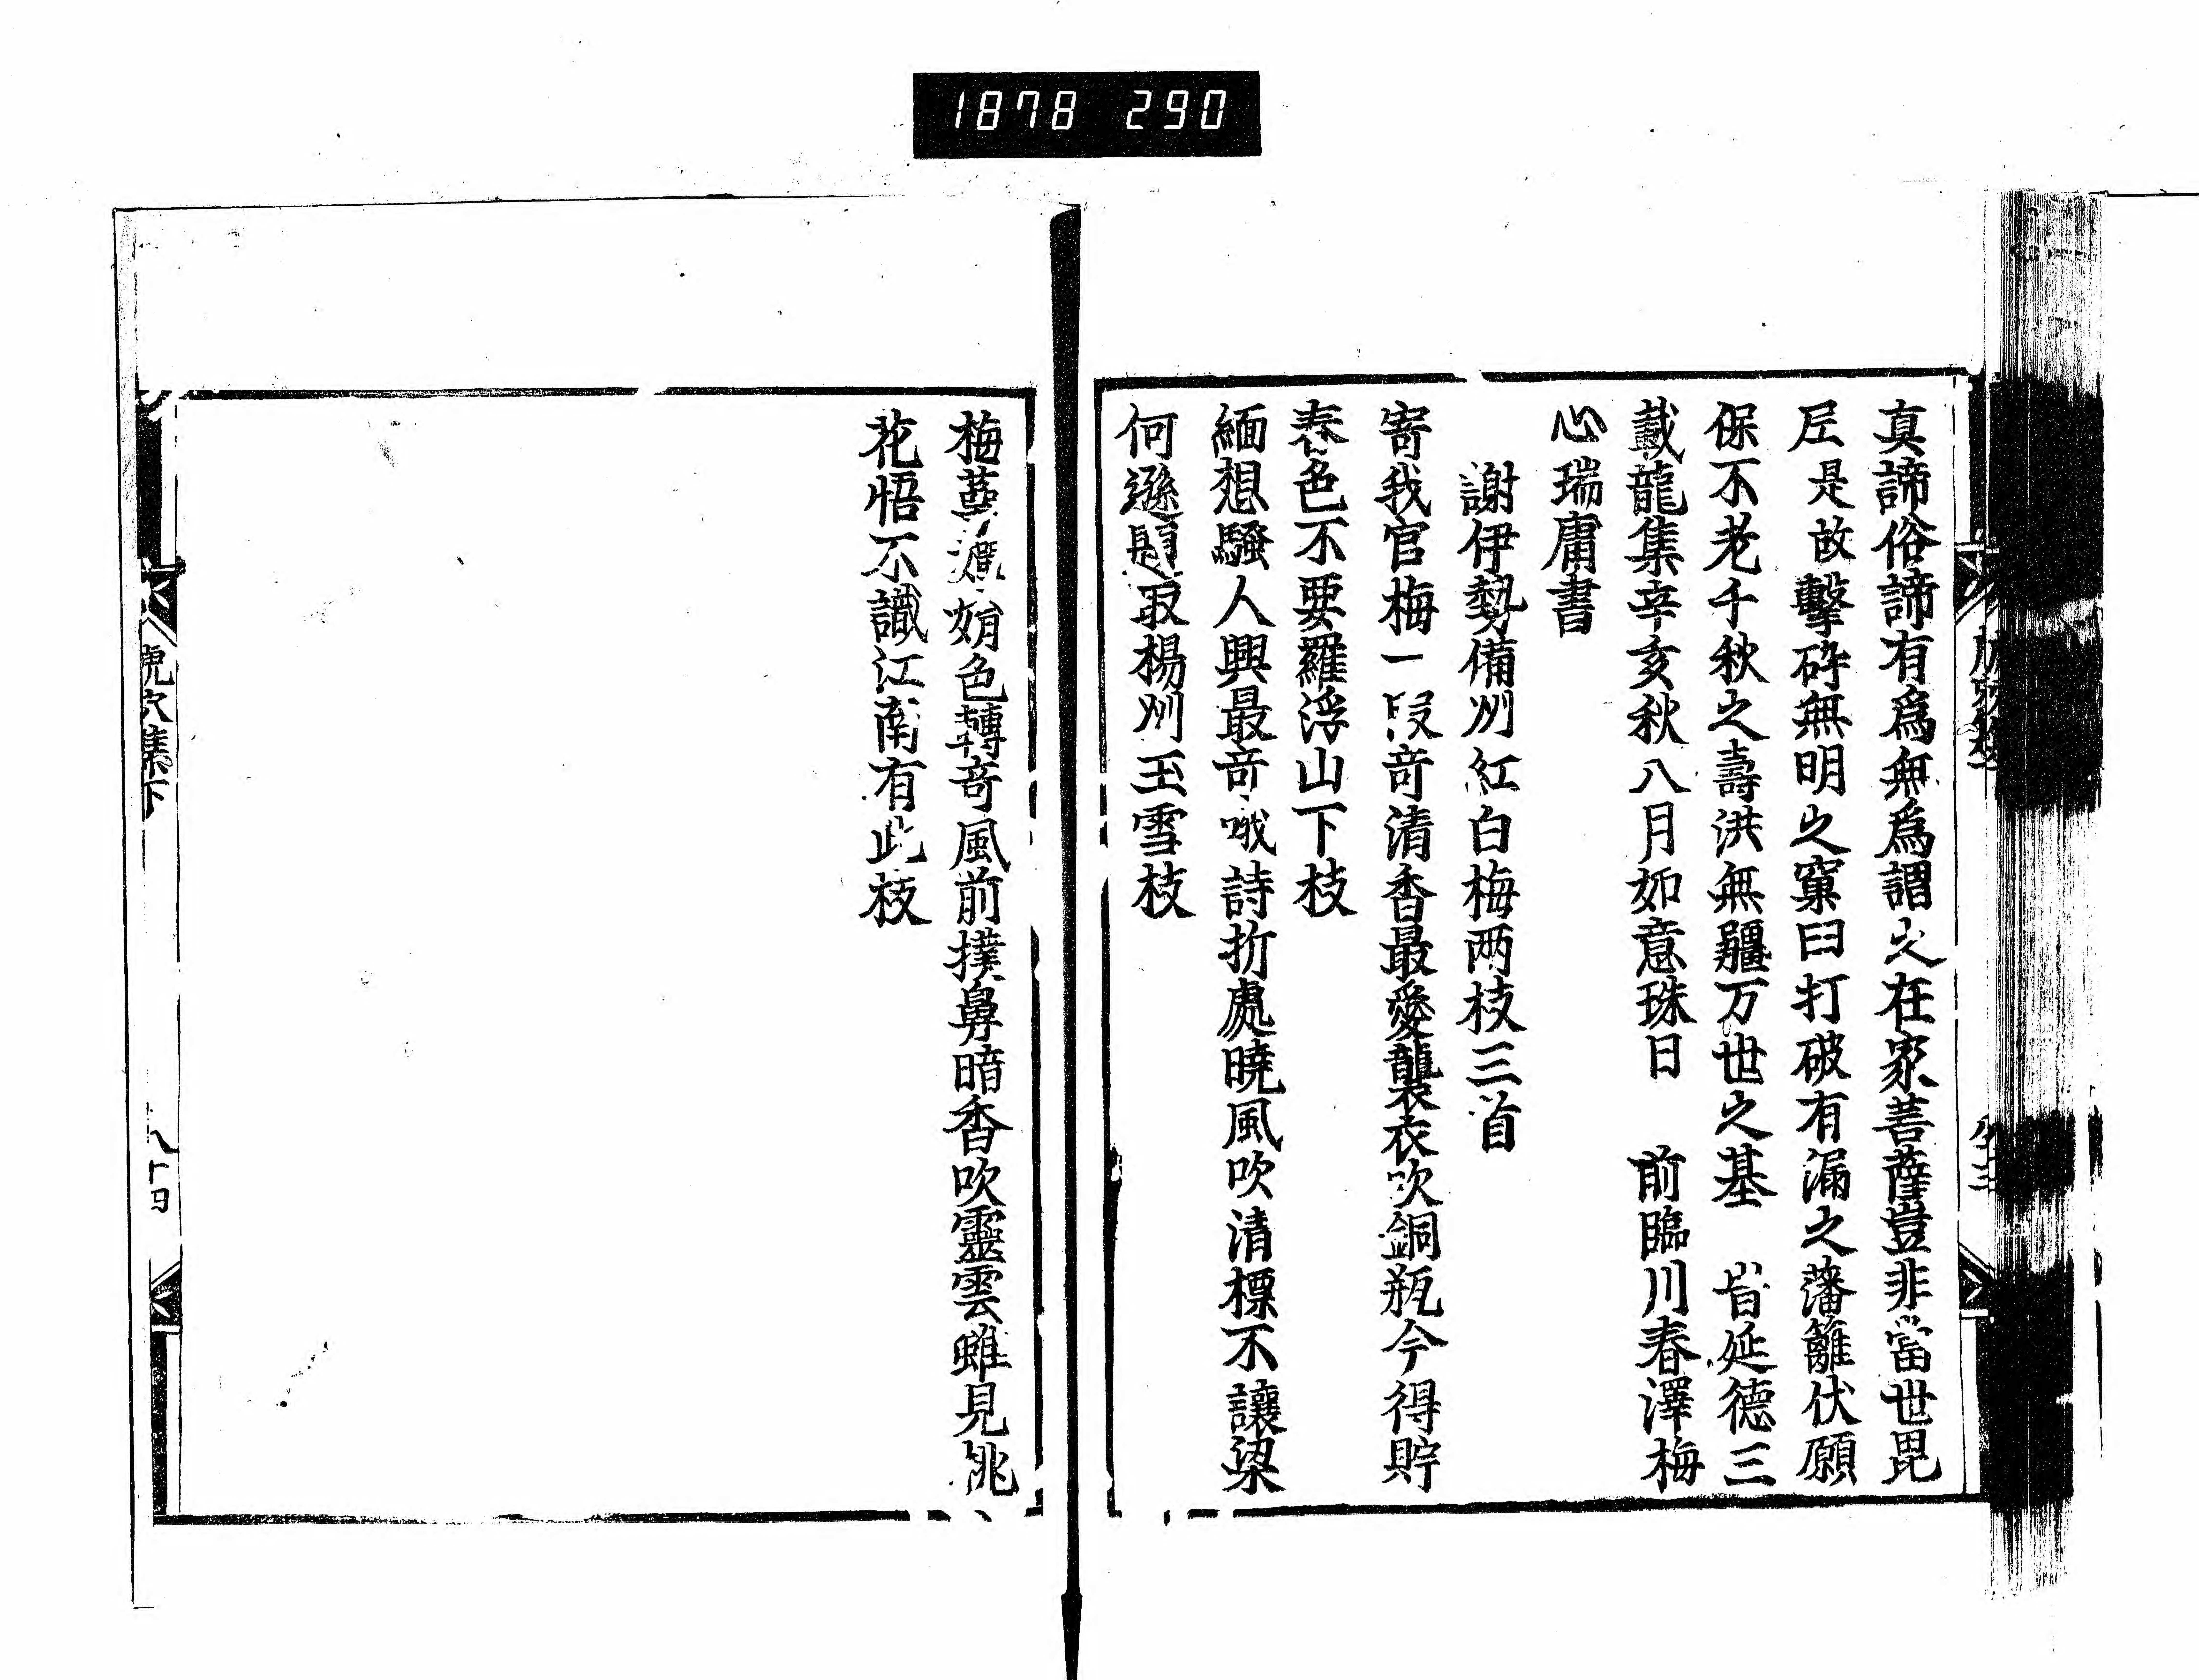 1878 290
真諦俗諦有爲無爲謂之在家菩薩豈非當世毘
尼是故擊碎無明之窠臼打破有漏之藩籬伏願
保不老千秋之壽洪無疆万世之基 旹延德三
載龍集辛亥秋八月如意珠日 前臨川春澤梅
心瑞庸書
謝伊勢備州紅白梅两枝三首
寄我官梅一段奇清香最愛襲衣吹銅瓶今得貯
春色不要羅浮山下枝
緬想騷人興最奇哦詩折處曉風吹清標不讓梁
何遜題取楊州玉雪枝
梅蘂 娟色轉奇風前撲鼻暗香吹靈雲雖見桃
花悟不識江南有此枝
八十四